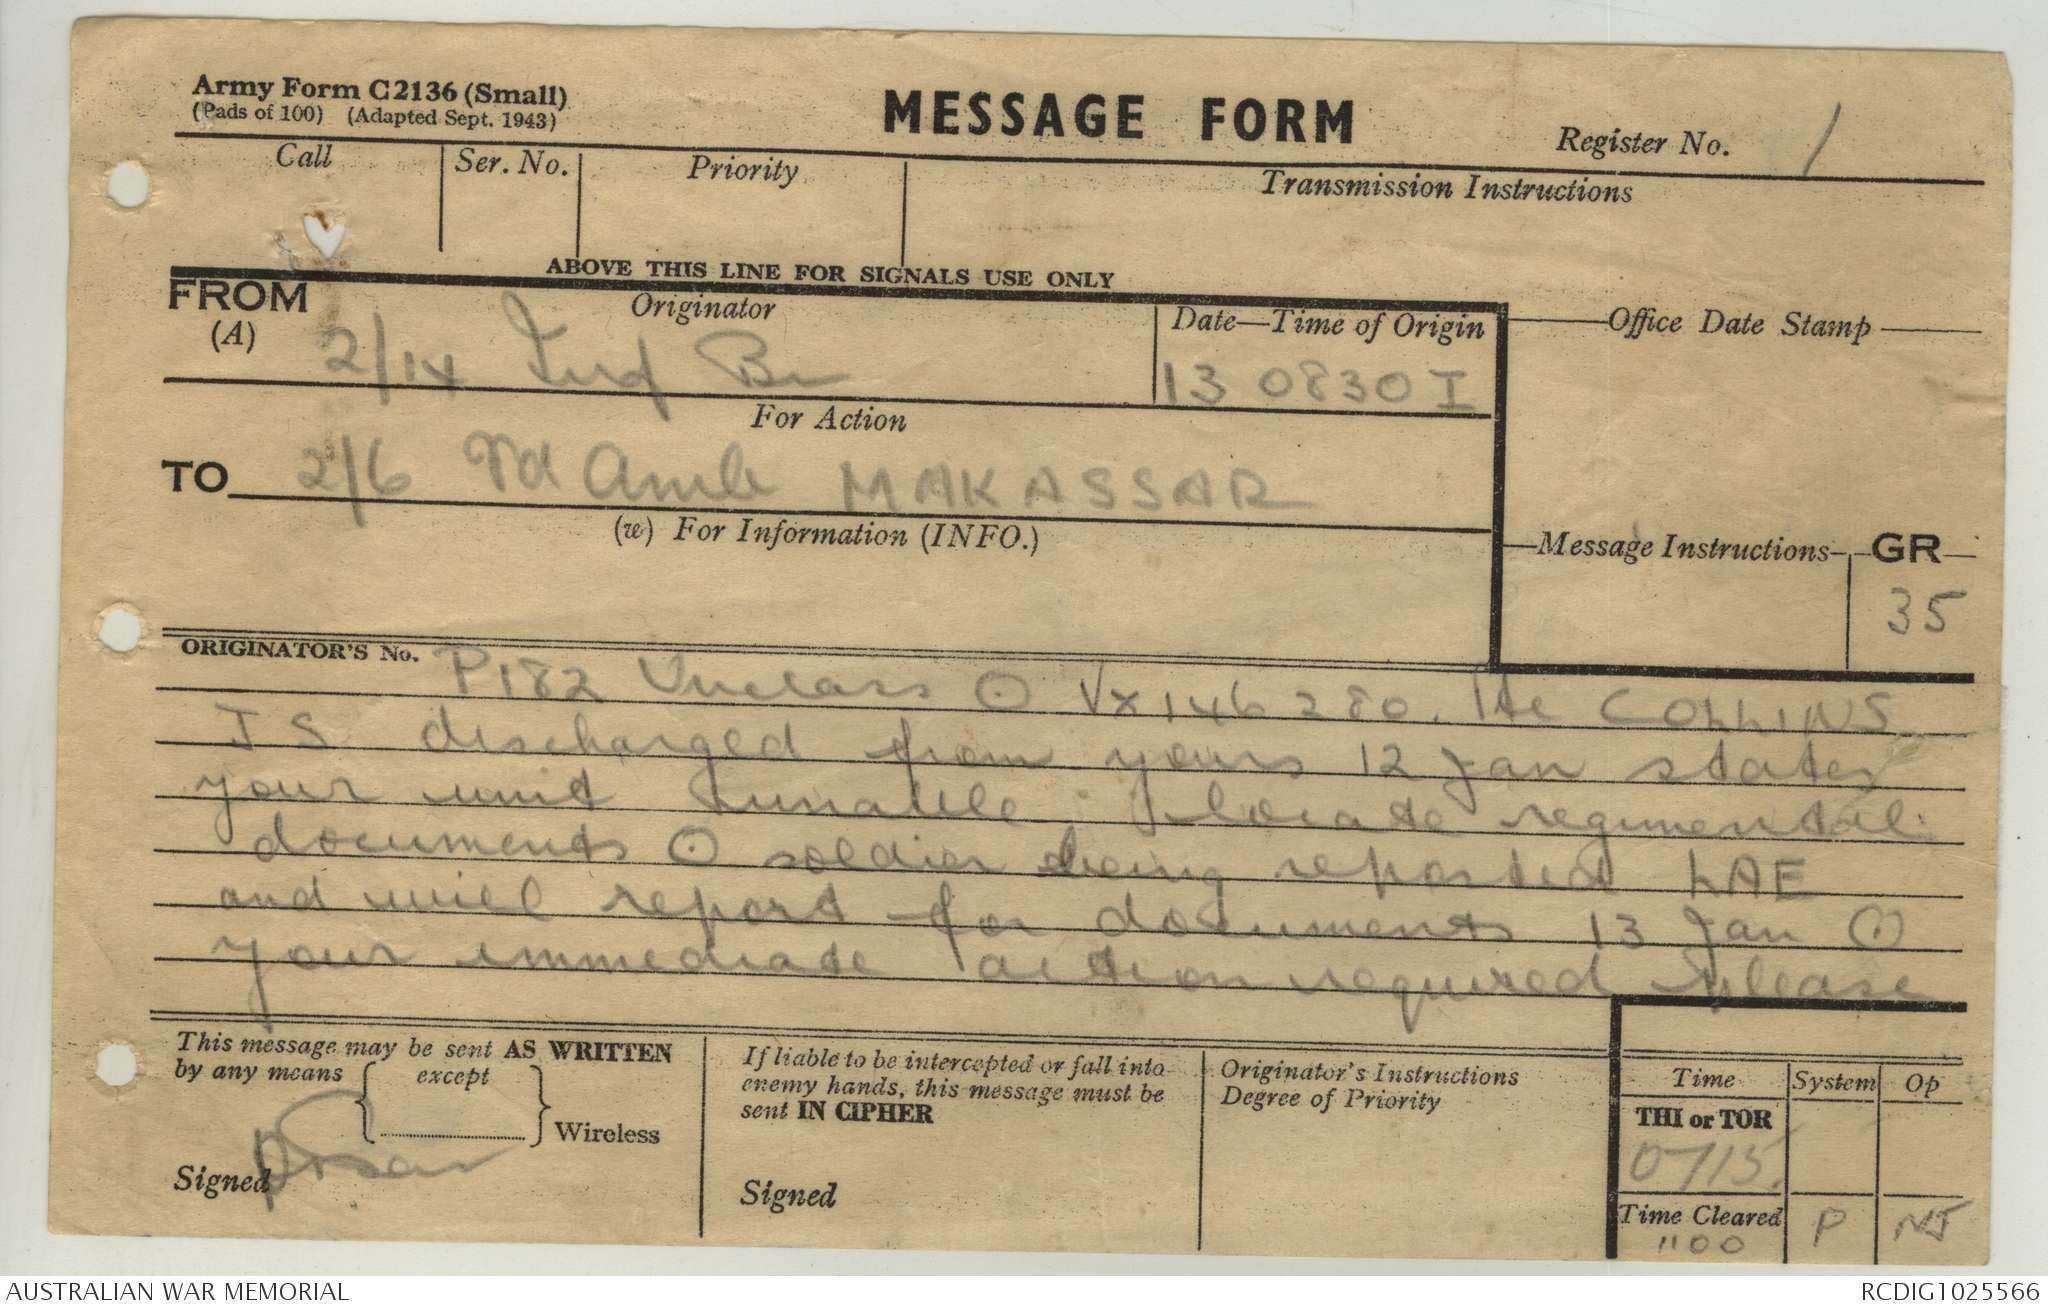 Army Form C2136 (Small)
(Pads of 100) (Adapted Sept. 1943)
MESSAGE FORM
Register No. 1
Call
Ser. No.
Priority
Transmission Instructions
ABOVE THIS LINE FOR SIGNALS USE ONLY
FROM
(A)
Originator
2/14 Inf Bn
Date—Time of Origin
13 0830 I
Office Date Stamp
For Action
TO 2/6 Fd Amb MAKASSAR
(w) For Information (INFO.)
Message Instructions
GR
35
ORIGINATOR'S No.
P182 Unclass ⊙ VX146280. Pte COLLINS
J S discharged from yours 12 Jan states
your unit unable locate regimental
documents ⊙ soldier being reported LAE
and will report for documents 13 Jan ⊙
your immediate action required please
This message may be sent AS WRITTEN
by any means except
Wireless
Signed
If liable to be intercepted or fall into
enemy hands, this message must be
sent IN CIPHER
Signed
Originator's Instructions
Degree of Priority
Time
System
Op
THI or TOR
0715
Time Cleared
1100
P
NJ
AUSTRALIAN WAR MEMORIAL
RCDIG1025566